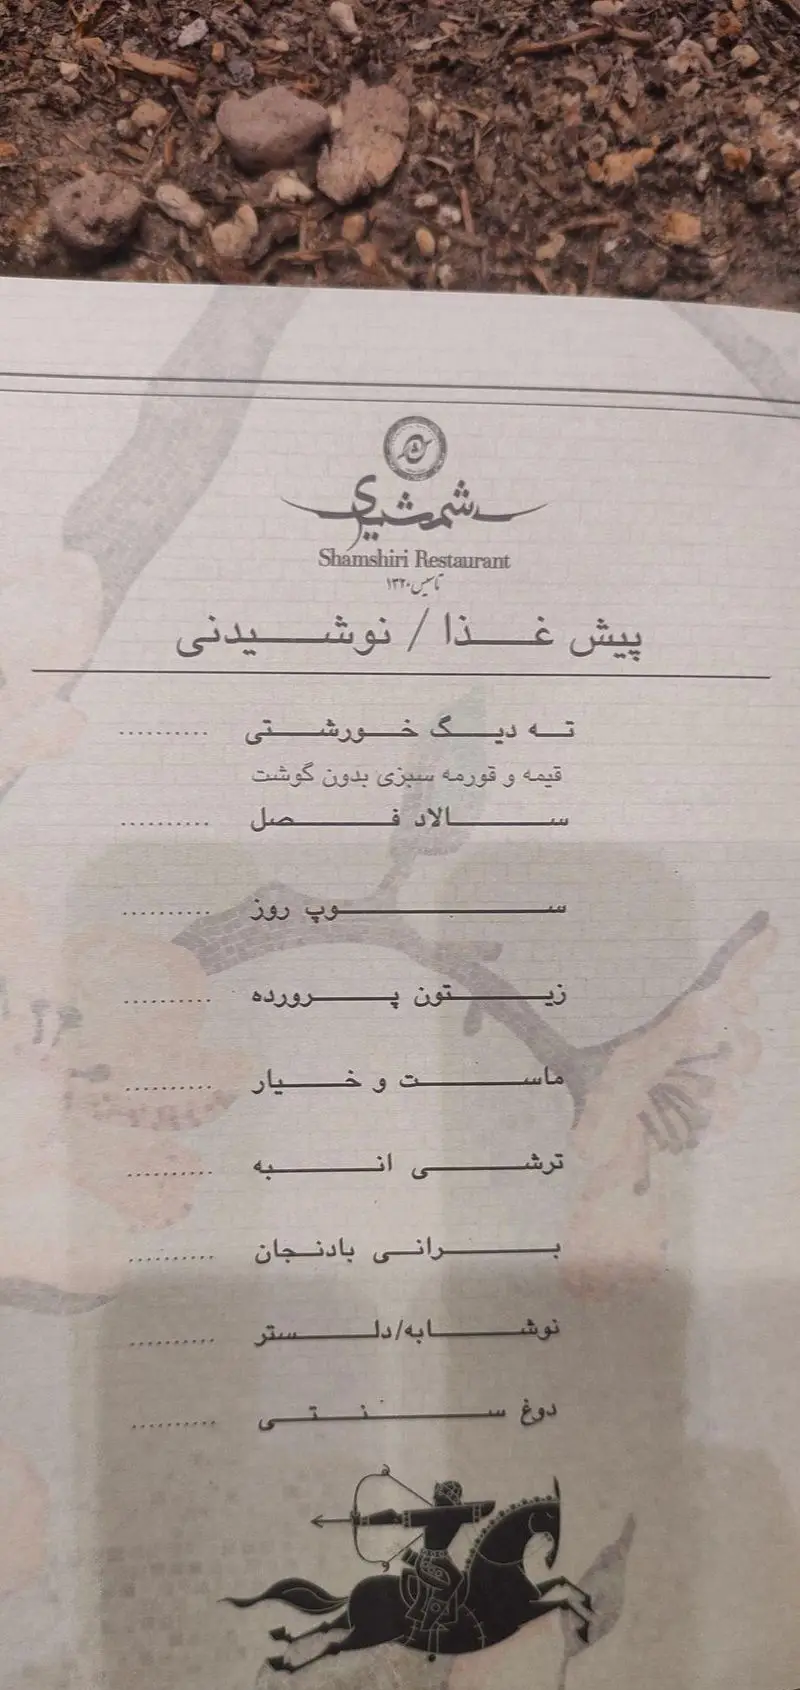 شمشیری
Shamshiri Restaurant
تاسیس ۱۳۲۰
پیش غذا / نوشیدنی
ته دیگ خورشتی ..........
قیمه و قورمه سبزی بدون گوشت
سالاد فصل ..........
سوپ روز ..........
زیتون پرورده ..........
ماست و خیار ..........
ترشی انبه ..........
برانی بادنجان ..........
نوشابه/دلستر ..........
دوغ سنتی ..........